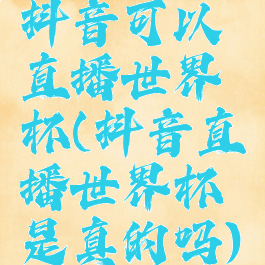 抖音可以
直播世界
杯(抖音直
播世界杯
是真的吗)